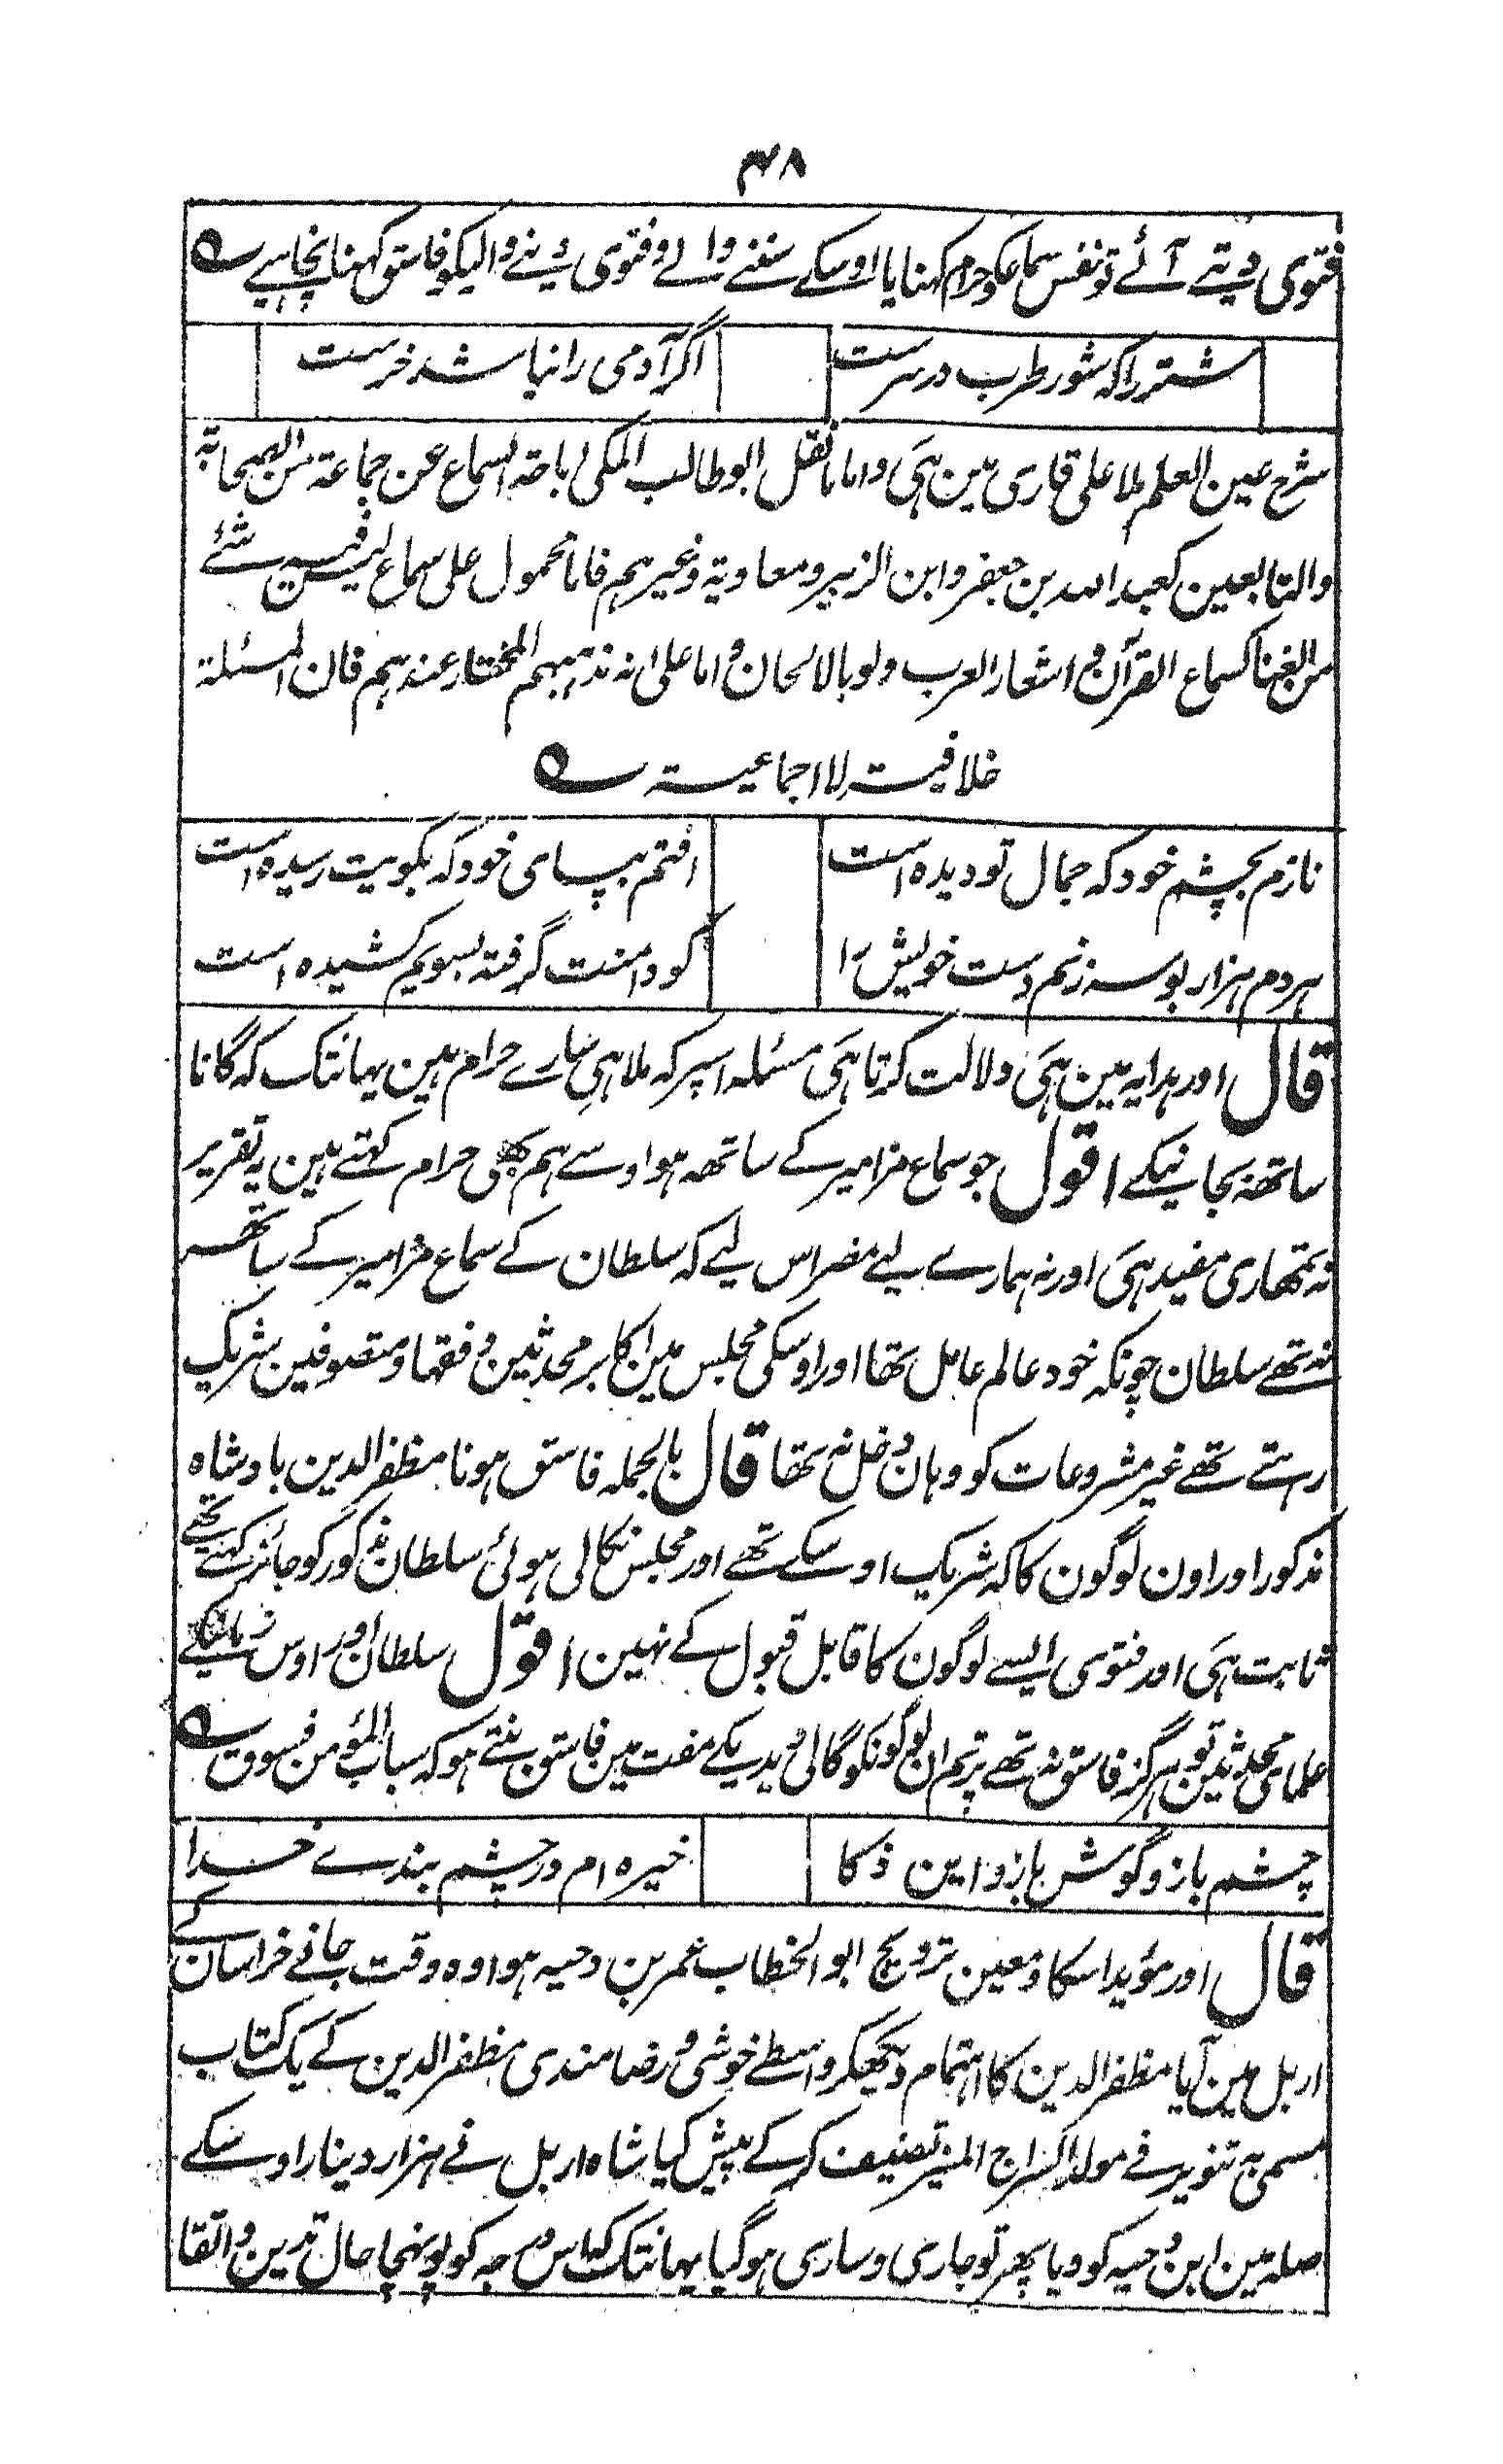 ۴۸
فتوی دیتے آئے تو نفس سماعکو حرام کہنا یا اوسکے سننے والے و فتوی دینے والیکو فاسق کہنا نچاہیے ؎
شتر را کہ شور طرب در سر ست
اگر آدمی را نباشد خرست
شرح عین العلم ملا علی قاری مین ہی واما ما نقل ابو طالب المکی اباحۃ السماع عن جماعۃ من الصحابۃ
والتابعین کعبد اللہ بن جعفر وابن الزبیر ومعاویۃ وغیرہم فاما محمول علی سماع لیس فیہ شئے
من الغنا کسماع القرآن و اشعار العرب ولو بالالحان و اما علی انہ مذہبہم المختار عندہم فان المسئلۃ
خلافیۃ لا اجماعیۃ ؎
نازم بچشم خود کہ جمال تو دیدہ است
افتم بپای خود کہ بکویت رسیدہ است
ہردم ہزار بوسہ زنم دست خویش را
کو دامنت گرفتہ بسویم کشیدہ است
قال اور ہدایہ مین ہی دلالت کرتا ہی مسئلہ اسپر کہ ملاہی سارے حرام ہین یہانتک کہ گانا
ساتھہ بجانیکے اقول جو سماع مزامیر کے ساتھہ ہو اوسے ہم بھی حرام کہتے ہین یہ تقریر
نہ تمھاری مفید ہی اور نہ ہمارے لیے مضر اس لیے کہ سلطان کے سماع مزامیر کے ساتھہ
نہ تھے سلطان چونکہ خود عالم عامل تھا اور اوسکی مجلس مین اکابر محدثین و فقہا و متصوفین شریک
رہتے تھے غیر مشروعات کو وہان دخل نہ تھا قال بالجملہ فاسق ہونا مظفر الدین بادشاہ
مذکور اور اون لوگون کا کہ شریک اوسکے تھے اور مجلس نکالی ہوئی سلطان مذکور کو جائز کہتے تھے
ثابت ہی اور فتوی ایسے لوگون کا قابل قبول کے نہین اقول سلطان اور اوس زمانیکے
علمای محدثین تو ہرگز فاسق نہ تھے پر تم ان لوگونکو گالی دیدیکے مفت مین فاسق بنتے ہو کہ سباب المؤمن فسوق ؎
چشم باز و گوش باز و این ذکا
خیرہ ام در چشم بندے خدا
قال اور مؤید اسکا و معین ترویج ابو الخطاب عمر بن دحیہ ہوا وہ وقت جانے خراسان کے
اربل مین آیا مظفر الدین کا اہتمام دیکھکر واسطے خوشی و رضامندی مظفر الدین کے یک کتاب
مسمی بہ تنویر فے مولد السراج المنیر تصنیف کرکے پیش کیا شاہ اربل نے ہزار دینار اوسکے
صلہ مین ابن دحیہ کو دیا پھر تو جاری و ساری ہو گیا یہانتک کہ اس درجہ کو پہونچا حال تدین و اتقا